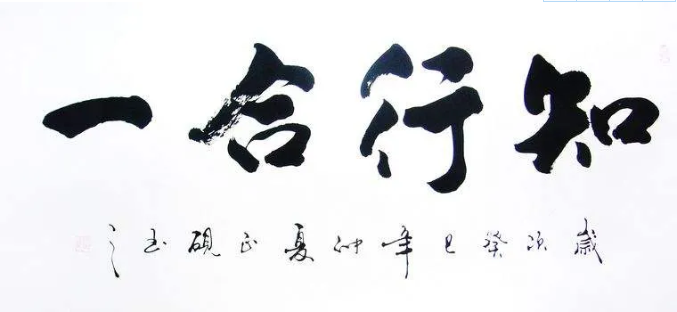 知行合一
岁次癸巳年仲夏正砚书之